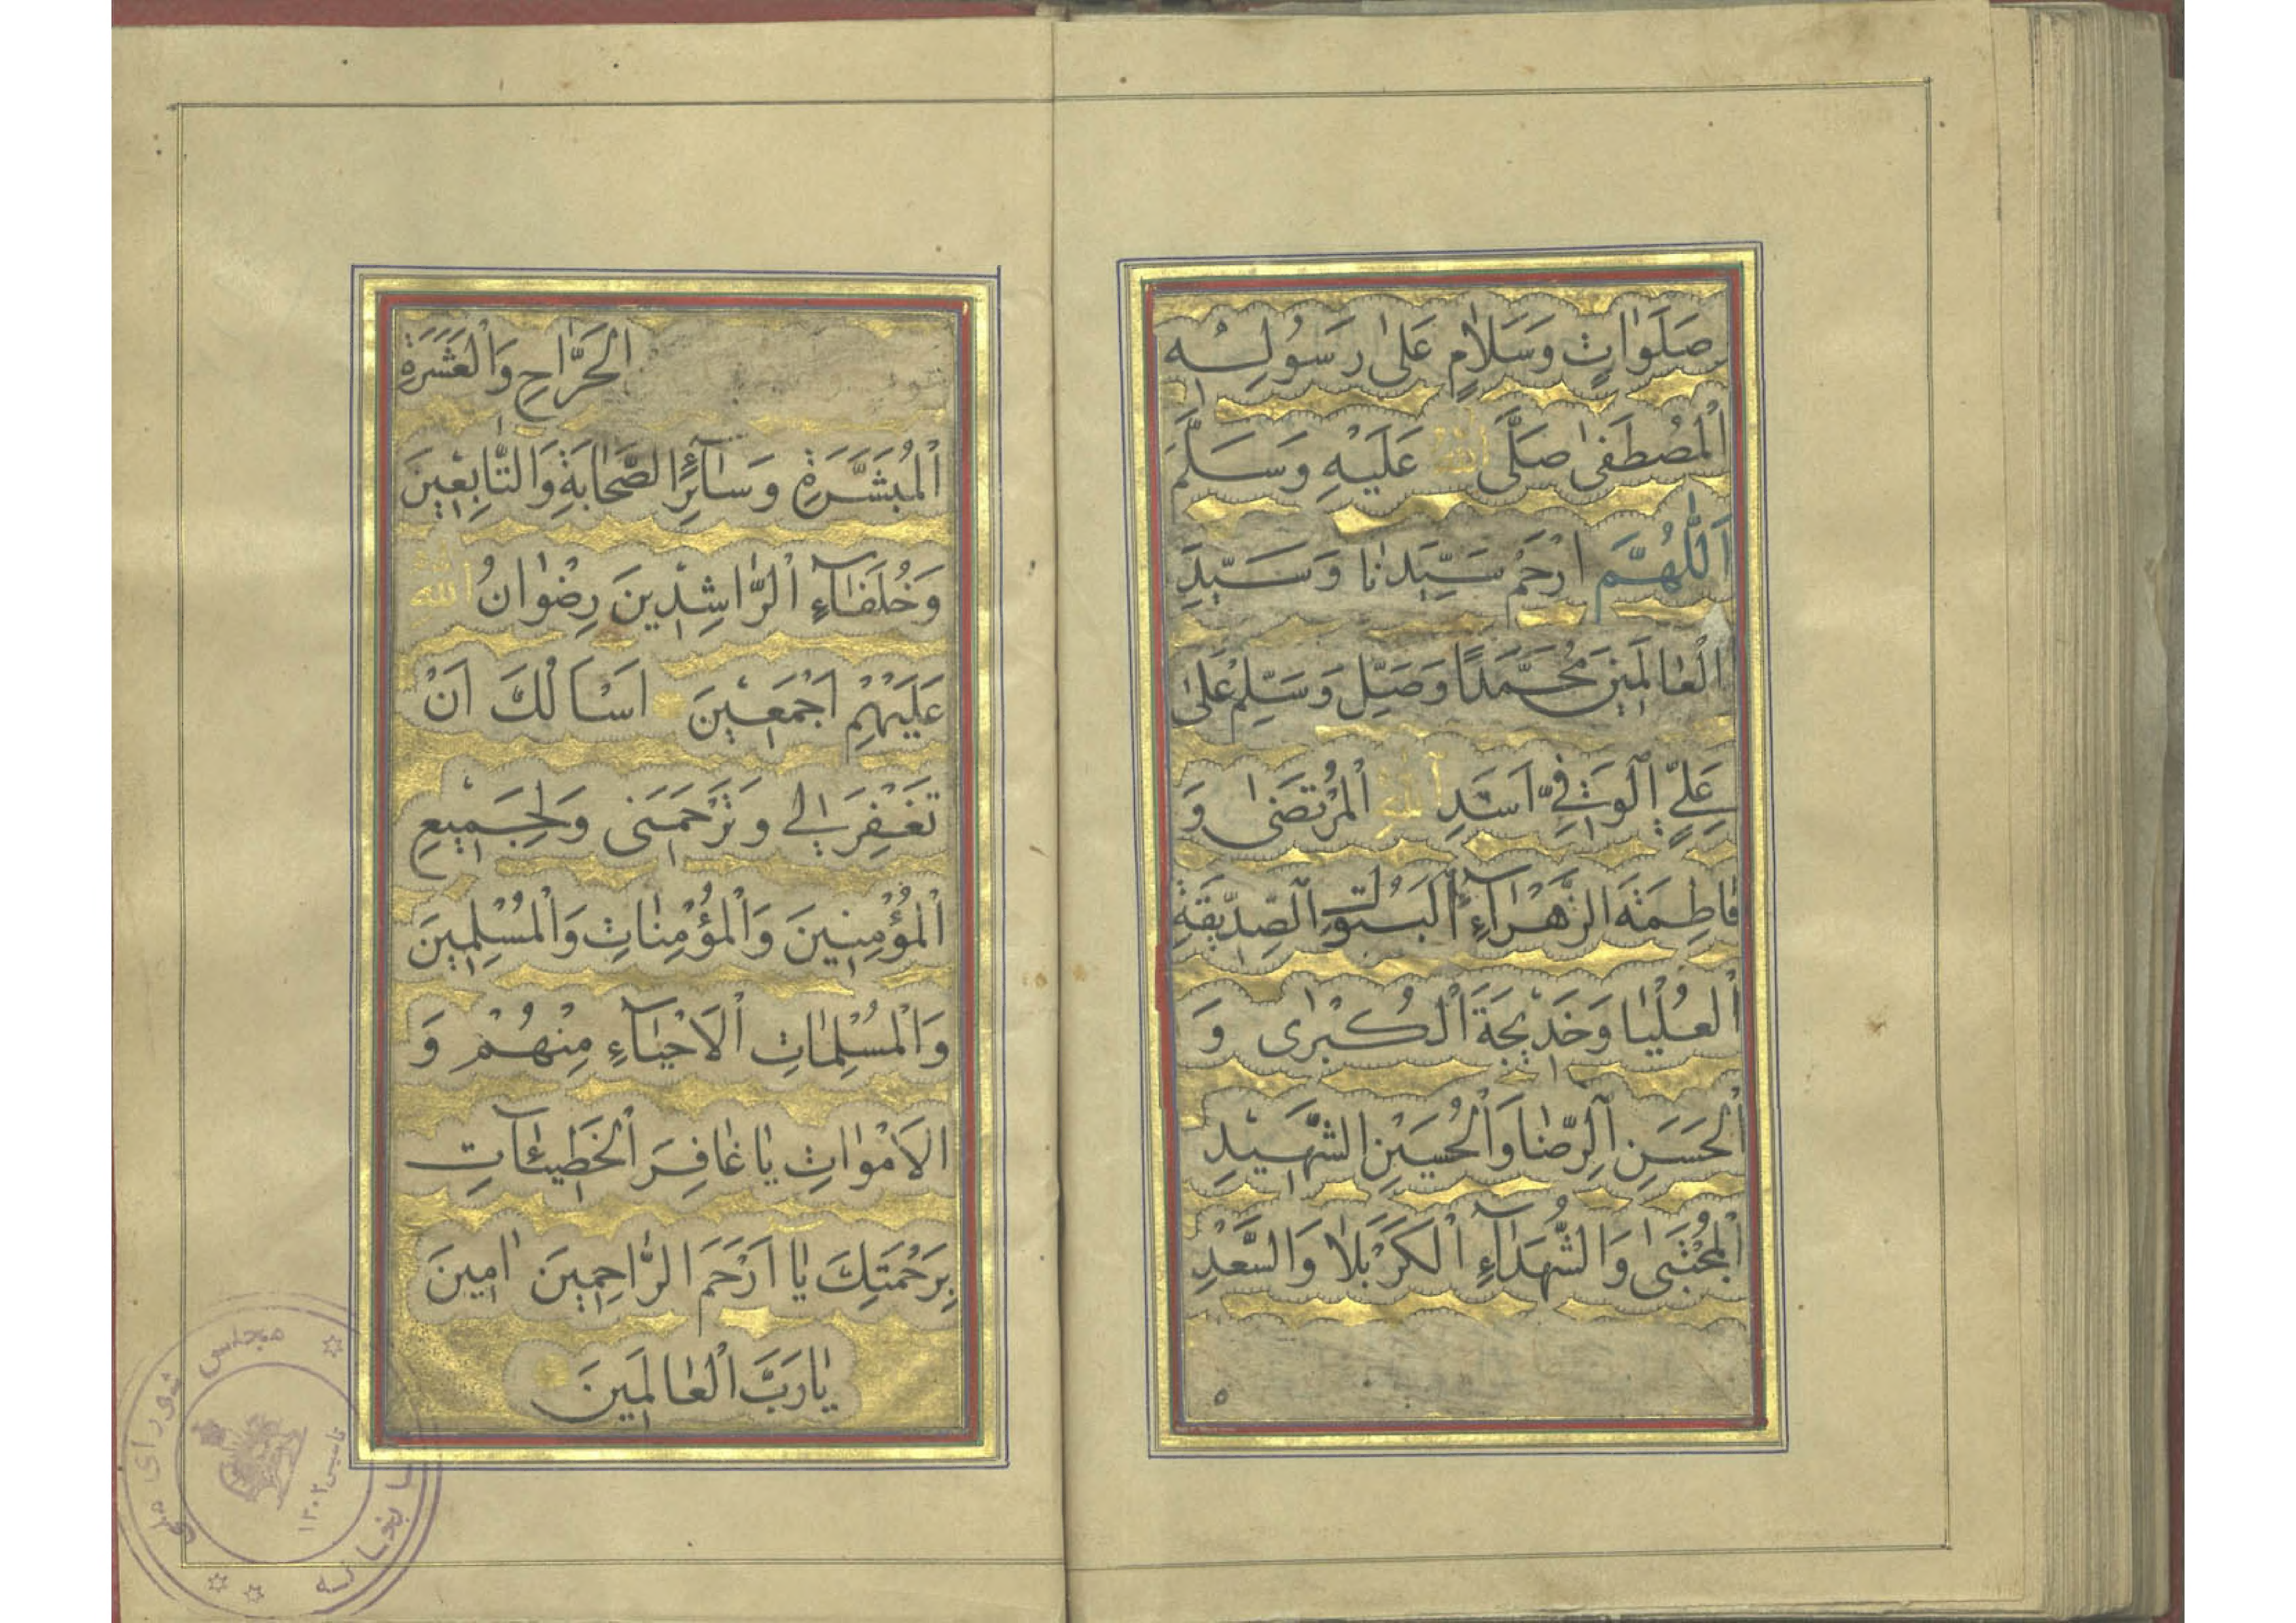 صَلَوٰاتٍ وَسَلاٰمٍ عَلىٰ رَسُولِهِ
اَلْمُصْطَفىٰ صَلَّى اللهُ عَلَيْهِ وَسَلَّمَ
اَللّٰهُمَّ ارْحَمْ سَيِّدَنٰا وَسَيِّدَ
الْعٰالَمِينَ مُحَمَّدًا وَصَلِّ وَسَلِّمْ عَلىٰ
عَلِيٍّ الْوَفِيِّ اَسَدِ اللهِ الْمُرْتَضىٰ وَ
فٰاطِمَةَ الزَّهْرَآءِ الْبَتُولِ الصِّدِّيقَةِ
الْعُلْيٰا وَخَدِيجَةَ الْكُبْرٰى وَ
الْحَسَنِ الرِّضٰا وَالْحُسَيْنِ الشَّهِيدِ
الْمُجْتَبىٰ وَالشُّهَدَآءِ الْكَرْبَلاٰ وَالسَّعْدِ
٥
الْجَرَّاحِ وَالْعَشَرَةِ
الْمُبَشَّرَةِ وَسَآئِرِ الصَّحٰابَةِ وَالتّٰابِعِينَ
وَخُلَفَآءِ الرّٰاشِدِينَ رِضْوٰانُ اللهِ
عَلَيْهِمْ اَجْمَعِينَ اَسْاَلُكَ اَنْ
تَغْفِرَ لِي وَتَرْحَمَنِى وَلِجَمِيعِ
الْمُؤْمِنِينَ وَالْمُؤْمِنٰاتِ وَالْمُسْلِمِينَ
وَالْمُسْلِمٰاتِ اَلْاَحْيَآءِ مِنْهُمْ وَ
الْاَمْوٰاتِ يٰا غٰافِرَ الْخَطِيئَآتِ
بِرَحْمَتِكَ يٰا اَرْحَمَ الرّٰاحِمِينَ اٰمِينَ
يٰا رَبَّ الْعٰالَمِينَ
كتابخانه مجلس شورای ملی
تاسیس ۱۳۰۲